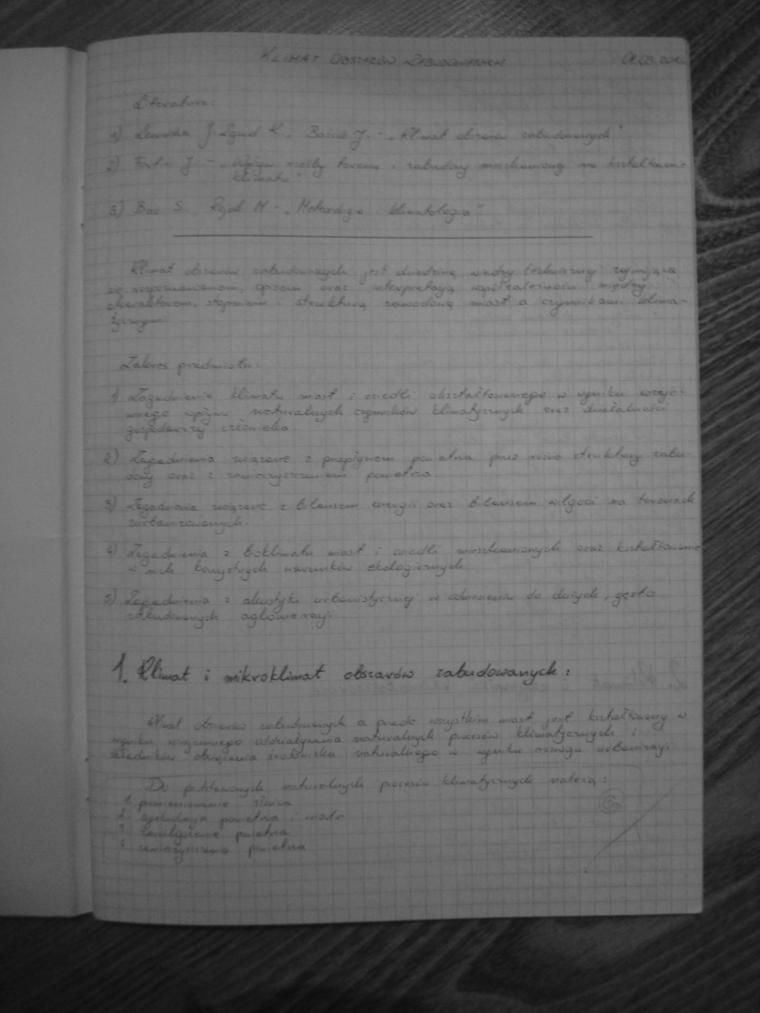 KLIMAT OBSZARÓW ZABUDOWANYCH
Literatura:
1) J. K., J. - "Klimat obszarów zabudowanych"
2) J. - "Wpływ rzeźby terenu i zabudowy mieszkaniowej na kształtowanie
klimatu"
3) Bac S., M - "Meteorologia i klimatologia"
Klimat obszarów zabudowanych jest dziedziną wiedzy zajmującą
się rozpoznawaniem, opisem oraz interpretacją współzależności między
charakterem, stopniem i strukturą miast a czynnikami klima-
tycznymi
Zakres przedmiotu:
1) Zagadnienie klimatu miast i osiedli ukształtowanego w wyniku wzaje-
mnego wpływu naturalnych czynników klimatycznych oraz działalności
gospodarczej człowieka
2) Zagadnienia związane z przepływem powietrza przez różne struktury zabu-
dowy oraz z zanieczyszczeniem powietrza
3) Zagadnienia związane z bilansem energii oraz bilansem wilgoci na terenach
zurbanizowanych
4) Zagadnienia z bioklimatu miast i osiedli mieszkaniowych oraz kształtowanie
w nich korzystnych warunków ekologicznych
5) Zagadnienia z akustyki urbanistycznej w odniesieniu do dużych, gęsto
zabudowanych aglomeracji
1. Klimat i mikroklimat obszarów zabudowanych:
Klimat obszarów zabudowanych a przede wszystkim miast jest kształtowany w
wyniku wzajemnego oddziaływania naturalnych procesów klimatycznych i
składników obciążenia środowiska naturalnego w wyniku rozwoju urbanizacji
Do podstawowych naturalnych procesów klimatycznych należą:
1. promieniowanie słońca
2. cyrkulacja powietrza i wiatr
3. zawilgocenie powietrza
4. zanieczyszczenie powietrza